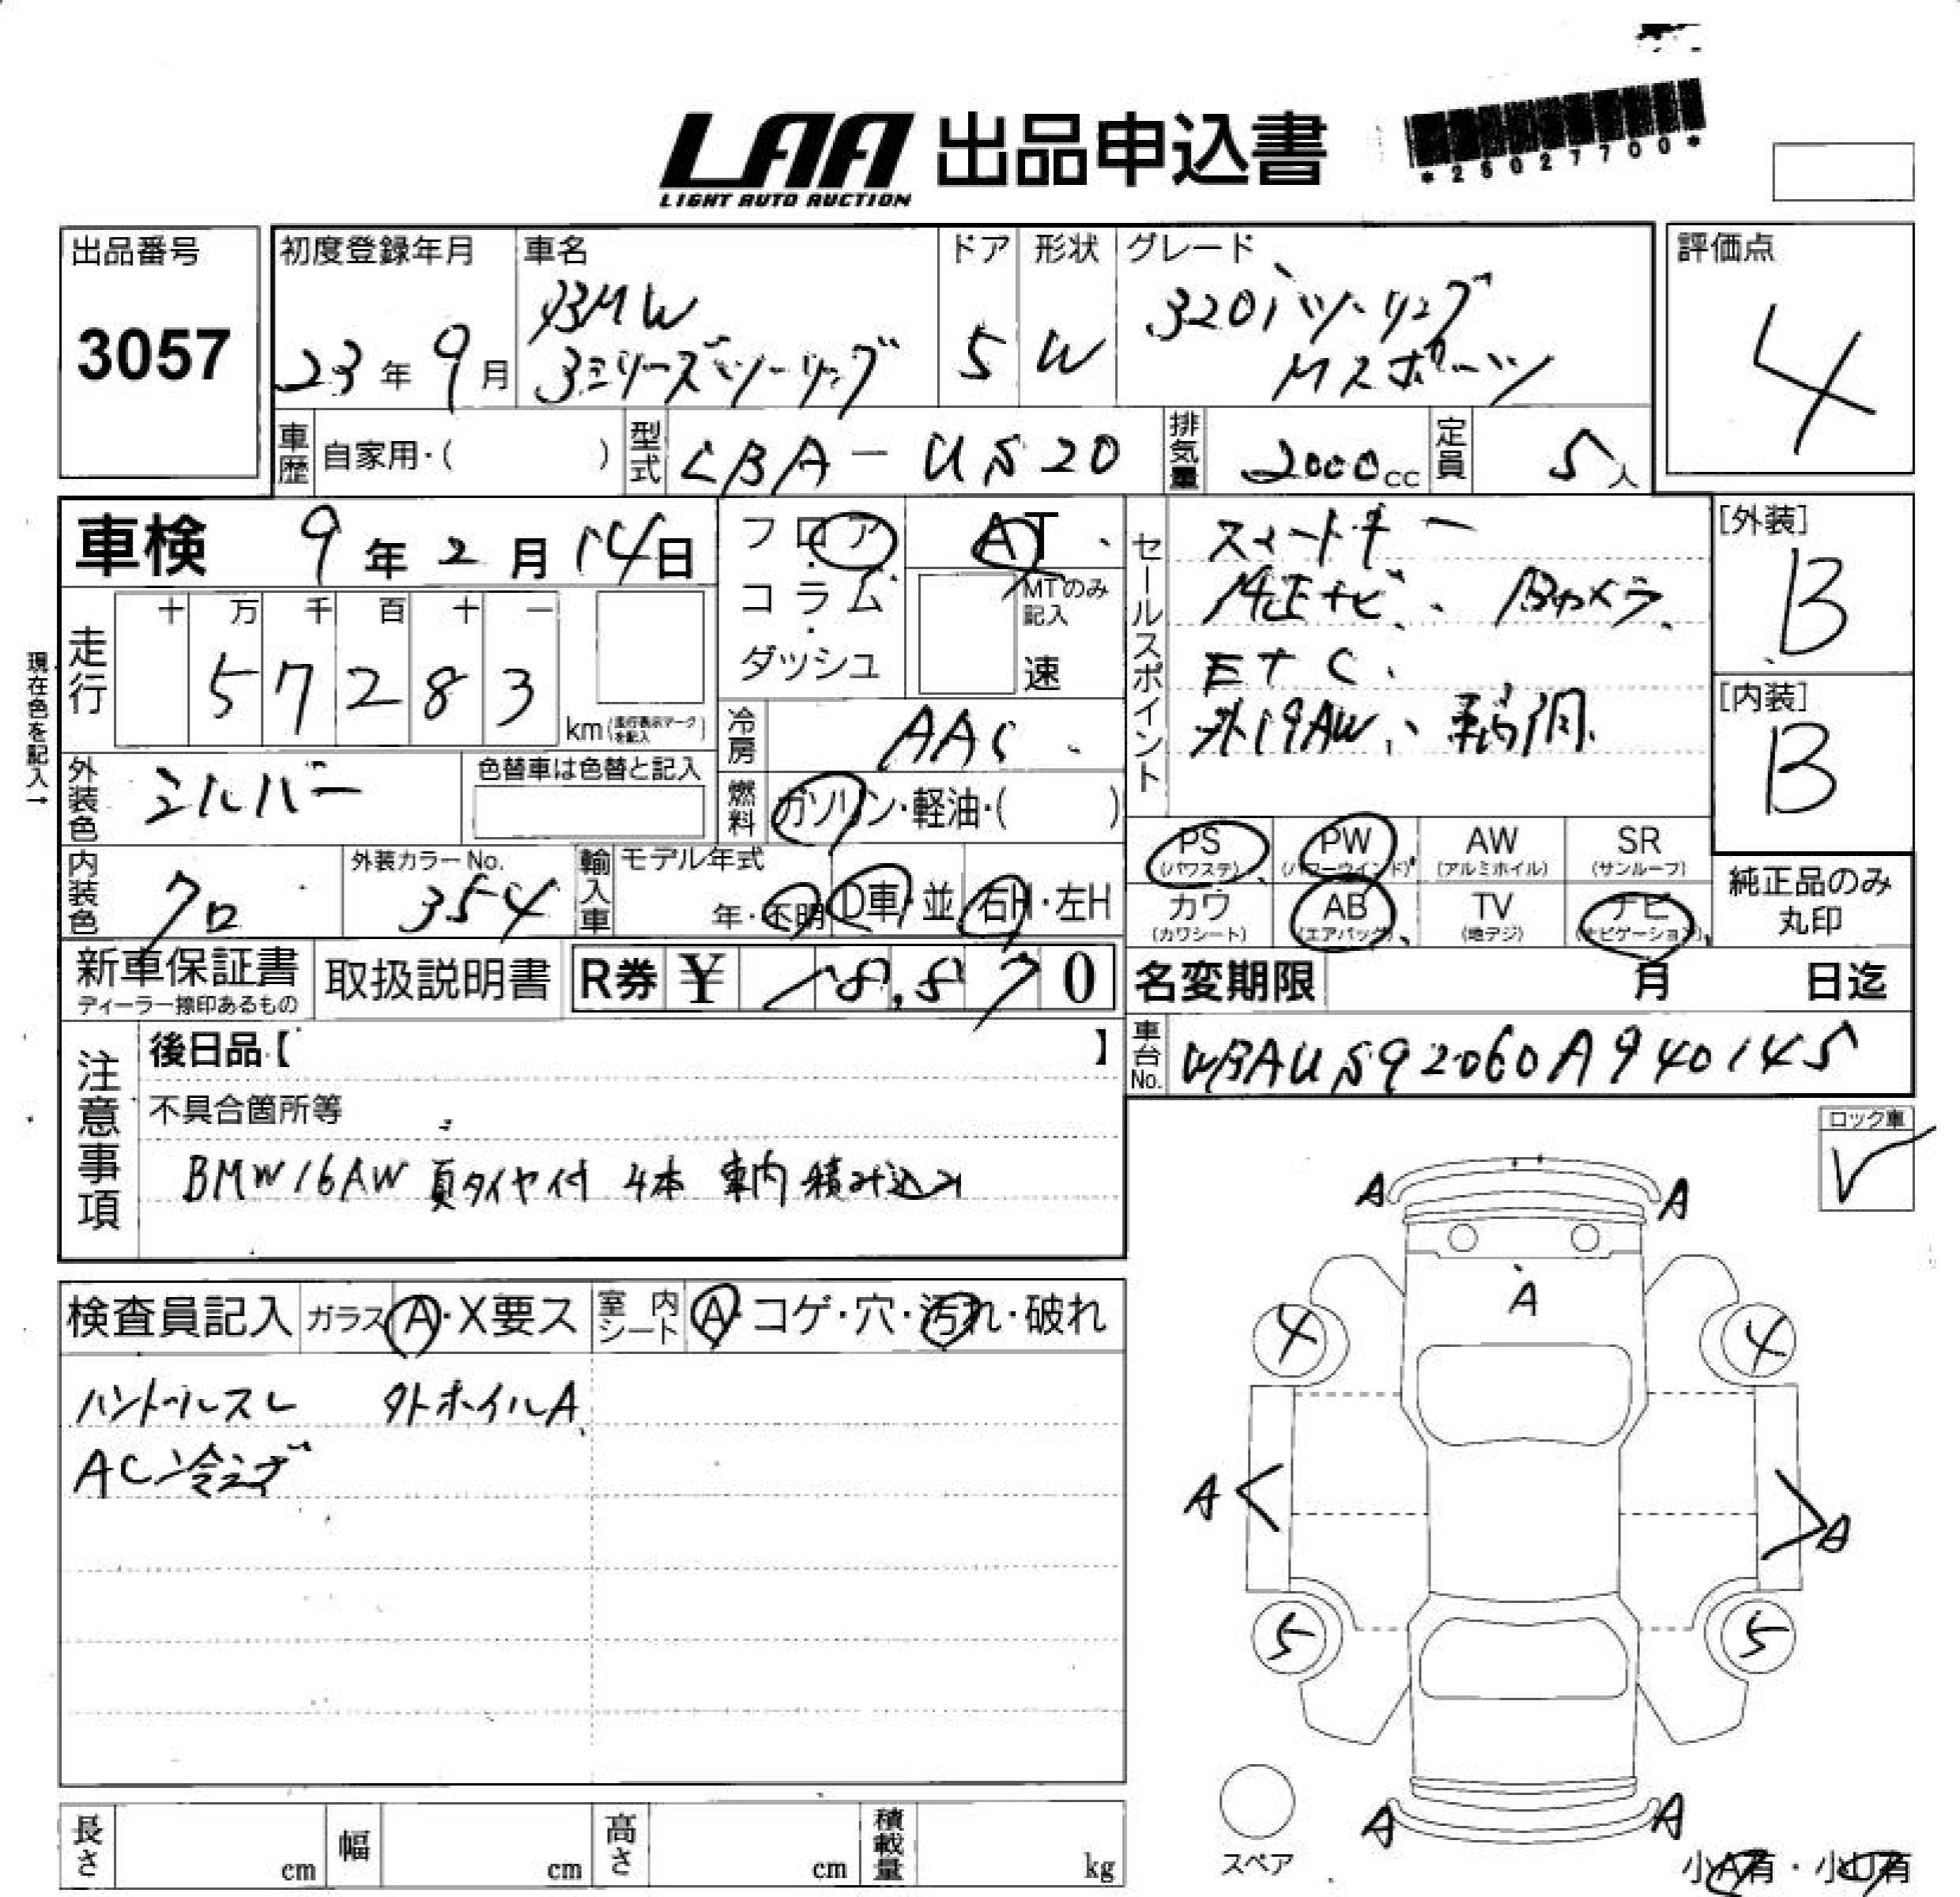 LAA 出品申込書
LIGHT AUTO AUCTION
*25027700*
出品番号
3057
初度登録年月
23年9月
車名
BMW
3シリーズツーリング
ドア
5
形状
W
グレード
320iツーリング
Mスポーツ
評価点
4
車歴 自家用・( )
型式 LBA-US20
排気量 2000cc
定員 5人
車検 9年2月14日
フロア・コラム・ダッシュ
AT
MTのみ記入
速
セールスポイント
スマートキー
純正ナビ、Bカメラ、
ETC、
外19AW、
[外装]
B
[内装]
B
現在色を記入→
走行
十 万 千 百 十 一
5 7 2 8 3
km(走行表示マークを記入)
冷房 AAC
外装色 シルバー
色替車は色替と記入
燃料 ガソリン・軽油・( )
PS (パワステ)
PW (パワーウインド)
AW (アルミホイル)
SR (サンルーフ)
カワ (カワシート)
AB (エアバッグ)
TV (地デジ)
ナビ (ナビゲーション)
純正品のみ
丸印
内装色 クロ
外装カラーNo.
354
輸入車
モデル年式
年・不明
D車・並
右H・左H
新車保証書
ディーラー捺印あるもの
取扱説明書
R券 ¥ 18,870
名変期限 月 日迄
車台No. WBAUS92060A940145
注意事項
後日品【 】
不具合箇所等
BMW16AW 夏タイヤ付 4本 車内積み込み
ロック車
✓
A A
A
4 4
A< >A
5 5
A A
検査員記入
ガラス A・X要ス
室内シート A・コゲ・穴・汚れ・破れ
ハンドルスレ 外ホイルA
AC冷えず
スペア
小A有・小U有
長さ cm
幅 cm
高さ cm
積載量 kg